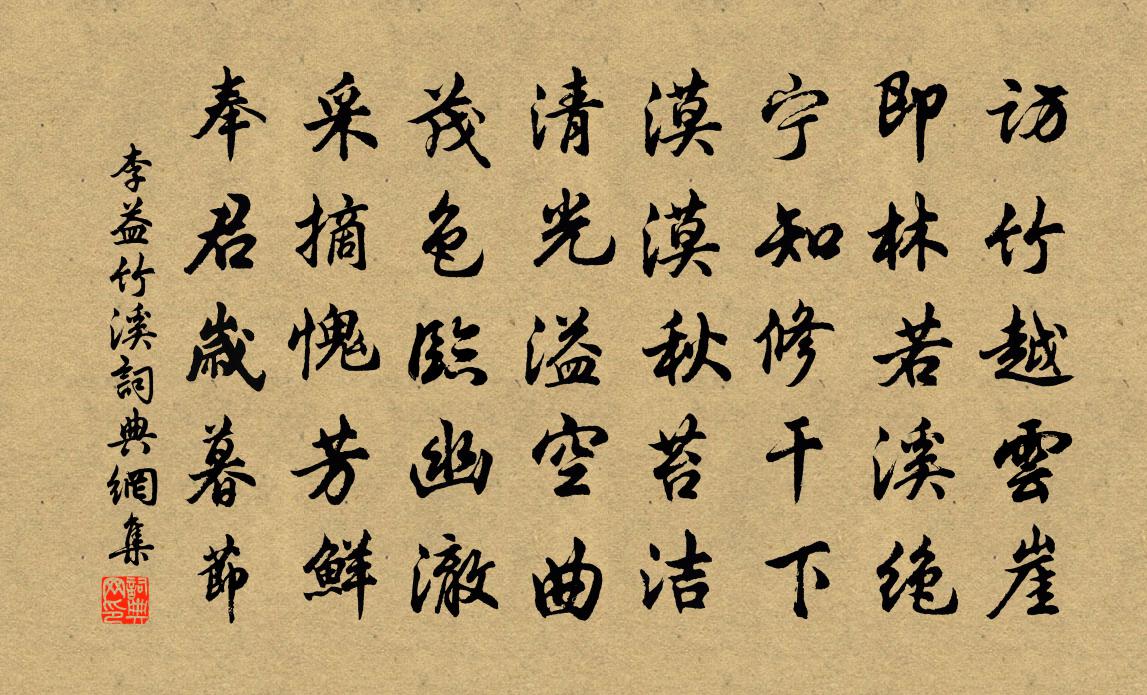 访竹越雲崖
即林若溪绝
宁知修干下
漠漠秋苔洁
清光溢空曲
茂色臨幽澈
采摘愧芳鮮
奉君歳暮節
李益竹溪詞典網集
詞典网印